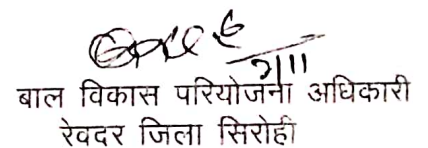 बाल विकास परियोजना अधिकारी
रेवदर जिला सिरोही